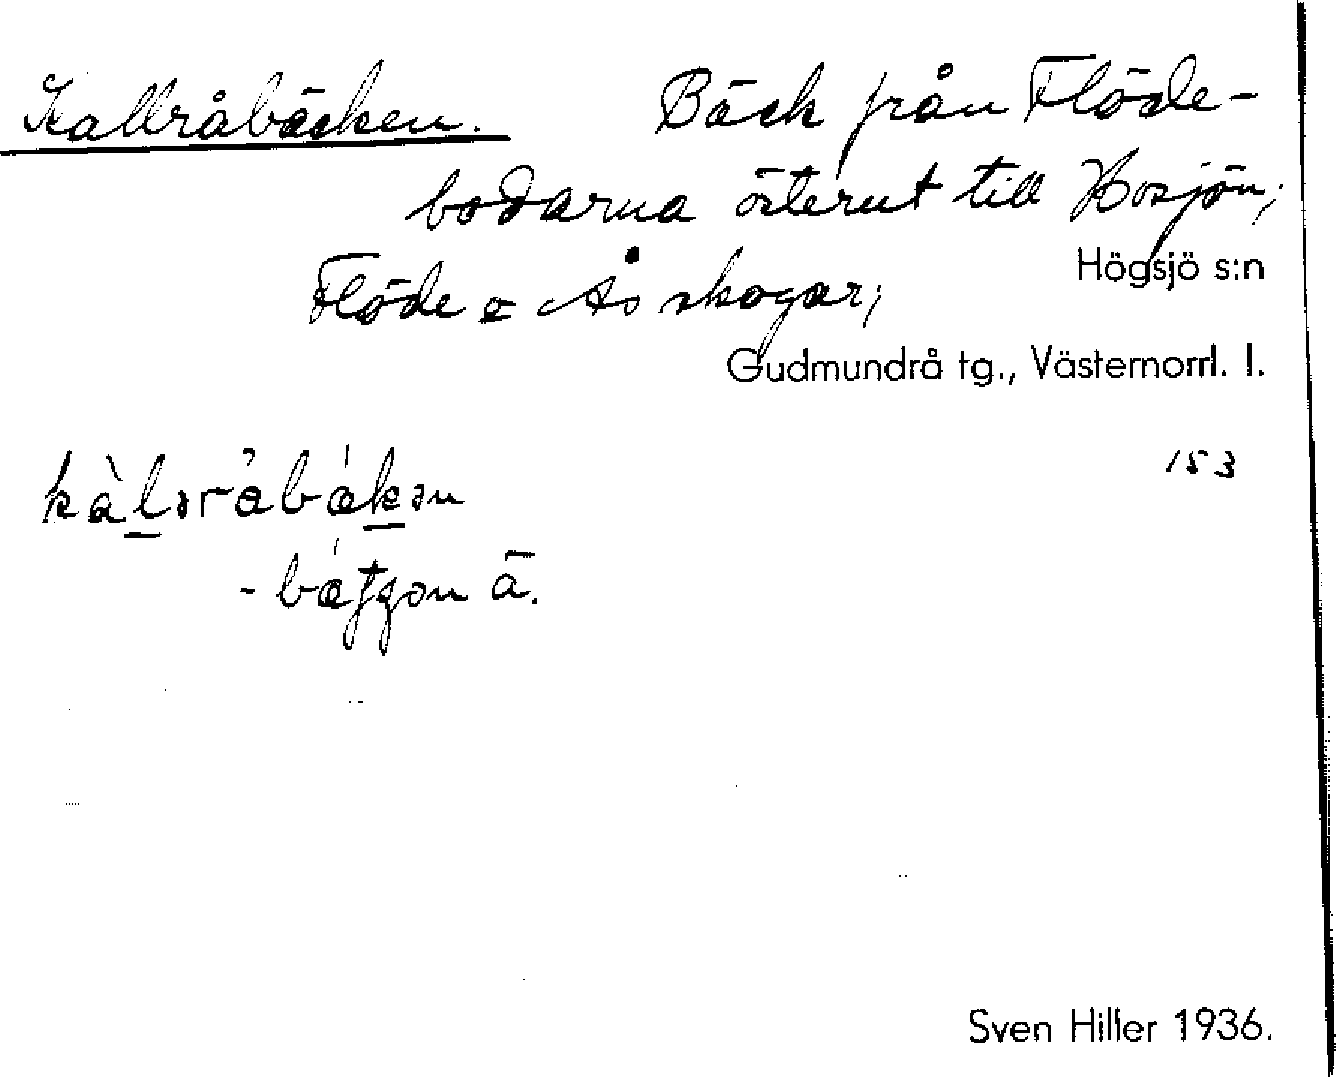 Kallråbäcken. Bäck från Flöde-
bodarna österut till Hosjön;
Högsjö s:n
Flöde o Ås skogar;
Gudmundrå tg., Västernorrl. l.
153
- ä.
Sven Hiller 1936.